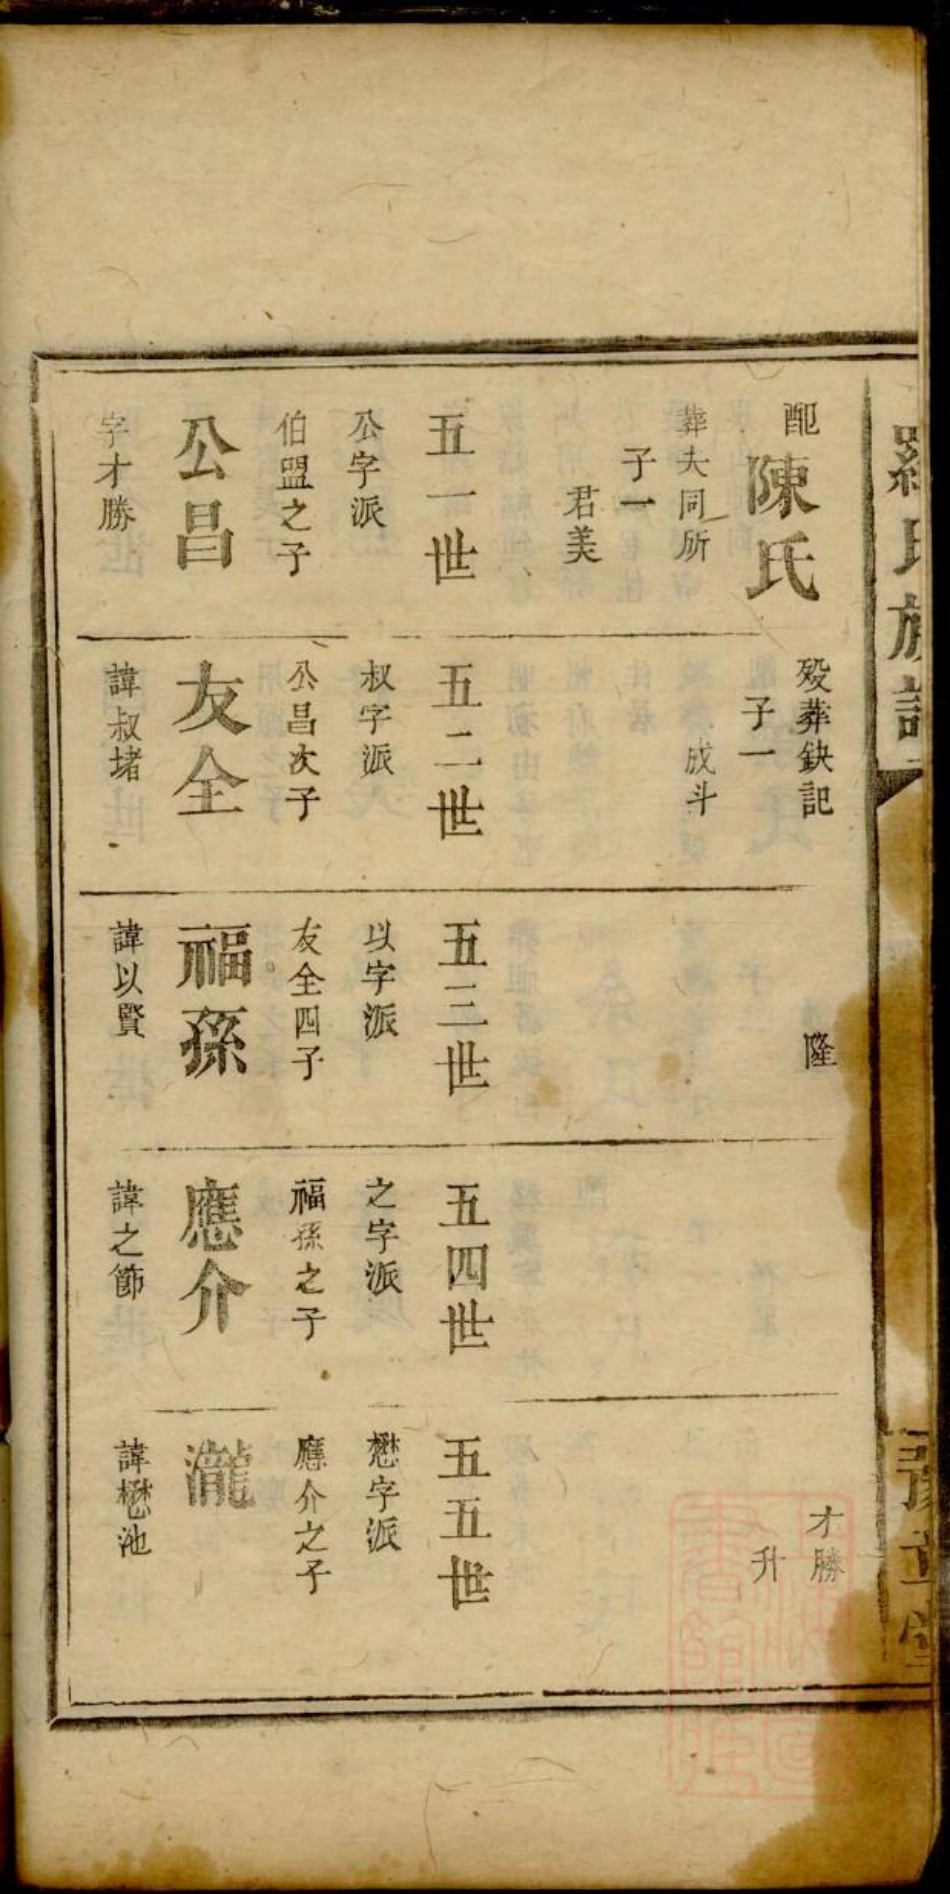 羅氏族譜
豫章堂
配
陳氏
葬夫同所
子一
君美
五一世
公字派
伯盟之子
公昌
字才勝
殁葬缺記
子一
成斗
五二世
叔字派
公昌次子
友全
諱叔堵
隆
五三世
以字派
友全四子
福孫
諱以賢
五四世
之字派
福孫之子
應介
諱之節
才勝
升
五五世
懋字派
應介之子
瀧
諱懋池